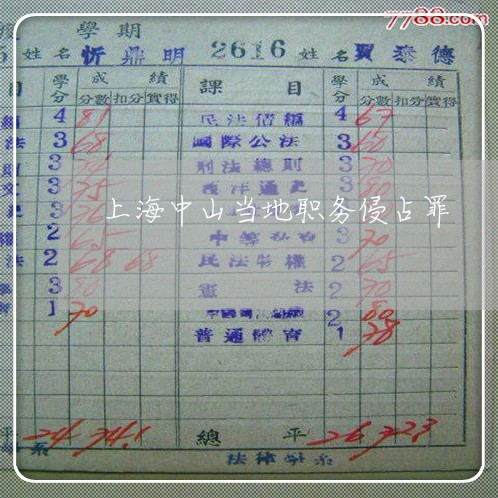 7788.com
學期
姓名 忻鼎明 2616 姓名 賈泰德
目 學分 成績 課目 學分 成績
分數 扣分 實得 分數 扣分 實得
4 81 民法債編 4 67
法 3 68 國際公法 3 60
則 3 刑法總則 3 70
3 75 西洋通史 3 80
3
上海中山当地职务侵占罪
權 2 65 3 70
法 2 68 68 民法物權 2 65
3 80 憲法 2 70
育 1 70 2 80
普通體育 1 78
平 24 74.1 總平 26 72.3
系 法律學系